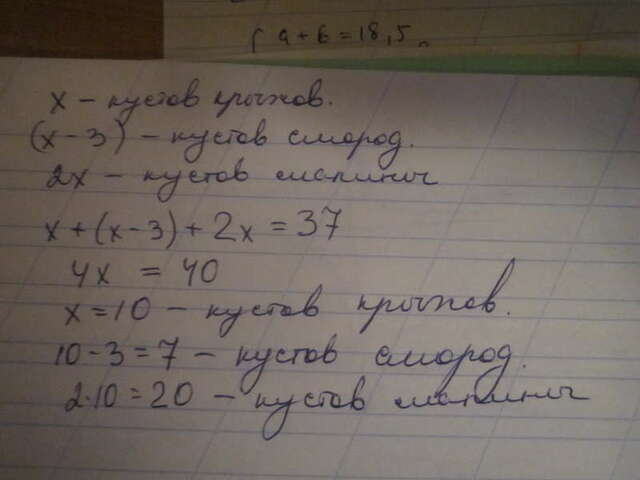 { a + b = 18,5
x – кустов крыжов.
(x – 3) – кустов смород.
2x – кустов малины
x + (x – 3) + 2x = 37
4x = 40
x = 10 – кустов крыжов.
10 – 3 = 7 – кустов смород.
2·10 = 20 – кустов малины